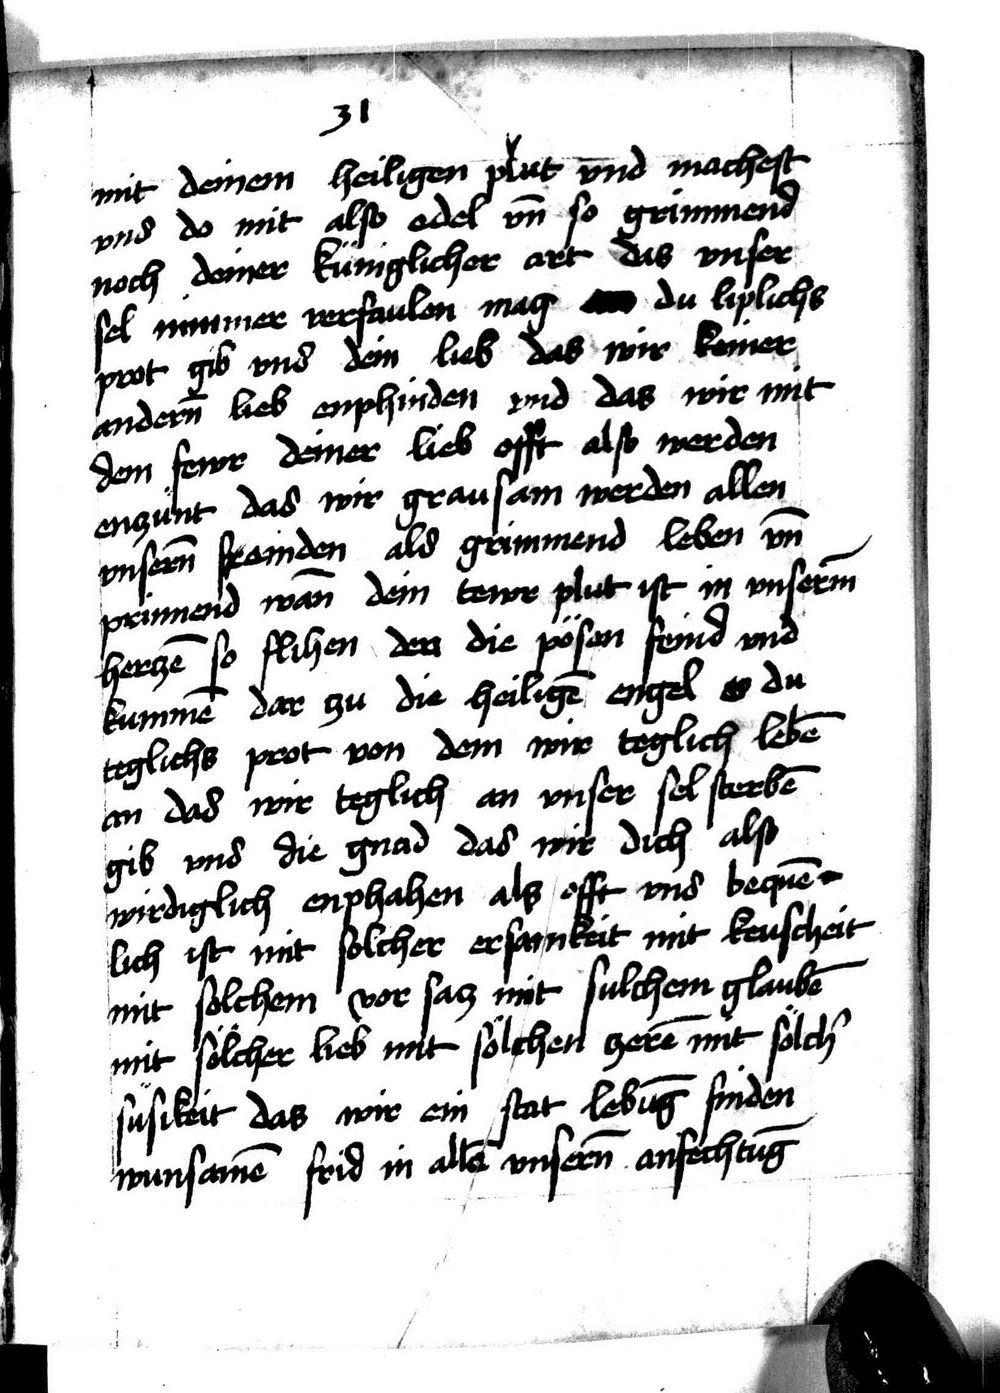 31
mit deinem heiligen plut vnd machest
vns do mit also edel vn̄ so grimmend
noch deiner küniglicher art das vnser
sel nimmer verfaulen mag du liplichs
prot gib vns dein lieb das wir keiner
andern̄ lieb enphinden vnd das wir mit
dem fewr deiner lieb offt also werden
enzünt das wir grausam werden allen
vnsern̄ feinden als grimmend leben vn̄
prinnend wan̄ dein tewr plut ist in vnserm̄
herczē so flihen den die pösen feind vnd
kummē dar zu die heiligē engel o du
teglichs prot von dem wir teglich lebē
an das wir teglich an vnser sel sterbē
gib vns die gnad das wir dich also
wirdiglich enphahen als offt vns bequē-
lich ist mit solcher ersamkeit mit keuscheit
mit solchem vor sacz mit sulchem glaubē
mit sölcher lieb mit sölchen zerē mit sölch
süsikeit das wir ein stat lebūg finden
wunsamē frid in allē vnsern̄ anfechtūg